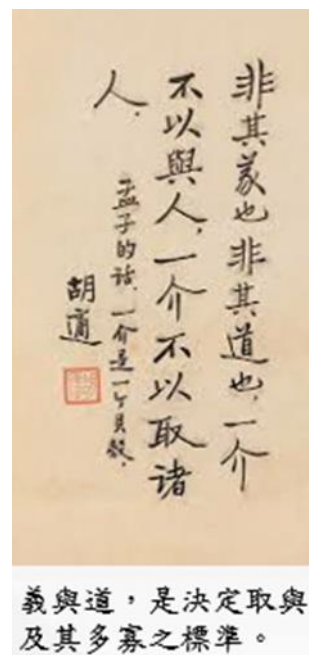 非其義也非其道也，一介
不以與人，一介不以取诸
人．
孟子的话．一介是一个貝殼．
胡適
義與道，是決定取與
及其多寡之標準。